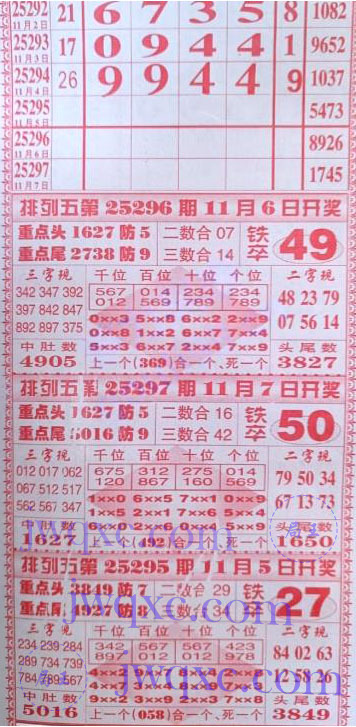 25292 11月2日 21 6 7 3 5 8 1082
25293 11月3日 17 0 9 4 4 1 9652
25294 11月4日 26 9 9 4 4 9 1037
25295 11月5日 5473
25296 11月6日 8926
25297 11月7日 1745
排列五第 25296 期 11 月 6 日开奖
重点头 1627 防 5 二数合 07 铁卒 49
重点尾 2738 防 9 三数合 14
三字现 千位 百位 十位 个位 二字现
342 347 392 567 014 234 234 48 23 79
397 842 847 012 569 789 789 07 56 14
892 897 375 0××3 5××8 6××2 2××9
0××8 1××2 6××7 7××4
中肚数 5××3 6××7 2××4 4××9 头尾数
4905 上一个(369)合一个、死一个 3827
排列五 第 25297 期 11 月 7 日开奖
重点头 1627 防 5 二数合 16 铁卒 50
重点尾 5016 防 9 三数合 42
三字现 千位 百位 十位 个位 二字现
012 017 062 675 312 275 014 79 50 34
067 512 517 120 867 160 569 67 13 73
562 567 347 1××0 6××5 7××1 0××9
5××9
1627 上一 (492) 合一个、死一个 1650
排列五第 25295 期 11 月 5 日开奖
重点头 3849 防 7 二数合 29 铁卒 27
重点 4927 防 8 三数合 34
三字现 千位 百位 十位 个位 二字现
234 239 284 342 567 567 423 84 02 63
289 734 739 897 012 012 978 58 26
784 789 567
中肚数 头尾数
5016 上一个(058)合一个、死一个 3849
jwqxc.com
jwqxc.com
jwqxc.com